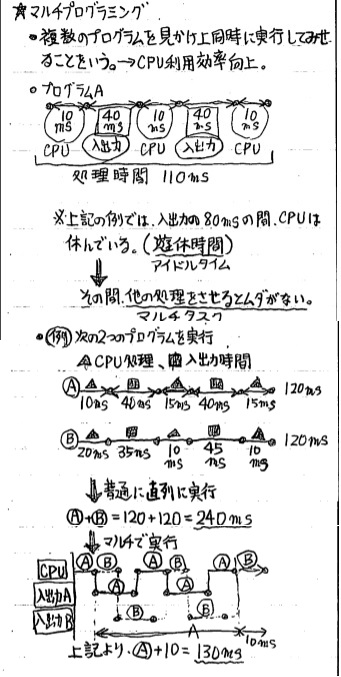 ☆マルチプログラミング
・複数のプログラムを見かけ上同時に実行してみせ
ることをいう。→CPU利用効率向上。
○プログラムA
10ms 40ms 10ms 40ms 10ms
CPU 入出力 CPU 入出力 CPU
処理時間 110ms
※上記の例では、入出力の80msの間、CPUは
休んでいる。(遊休時間)
アイドルタイム
その間、他の処理をさせるとムダがない。
マルチタスク
・例 次の2つのプログラムを実行
CPU処理、入出力時間
A 10ms 40ms 15ms 40ms 15ms 120ms
B 20ms 35ms 10ms 45ms 10ms 120ms
普通に直列に実行
A+B=120+120=240ms
マルチで実行
CPU A B A B A B
入出力A A A
入出力B B B
A 10ms
上記より、A+10=130ms